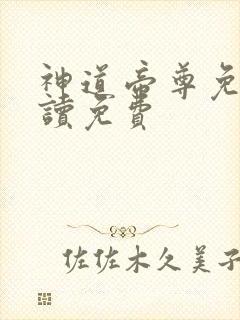 神道帝尊免
讀免費
佐佐木久美子